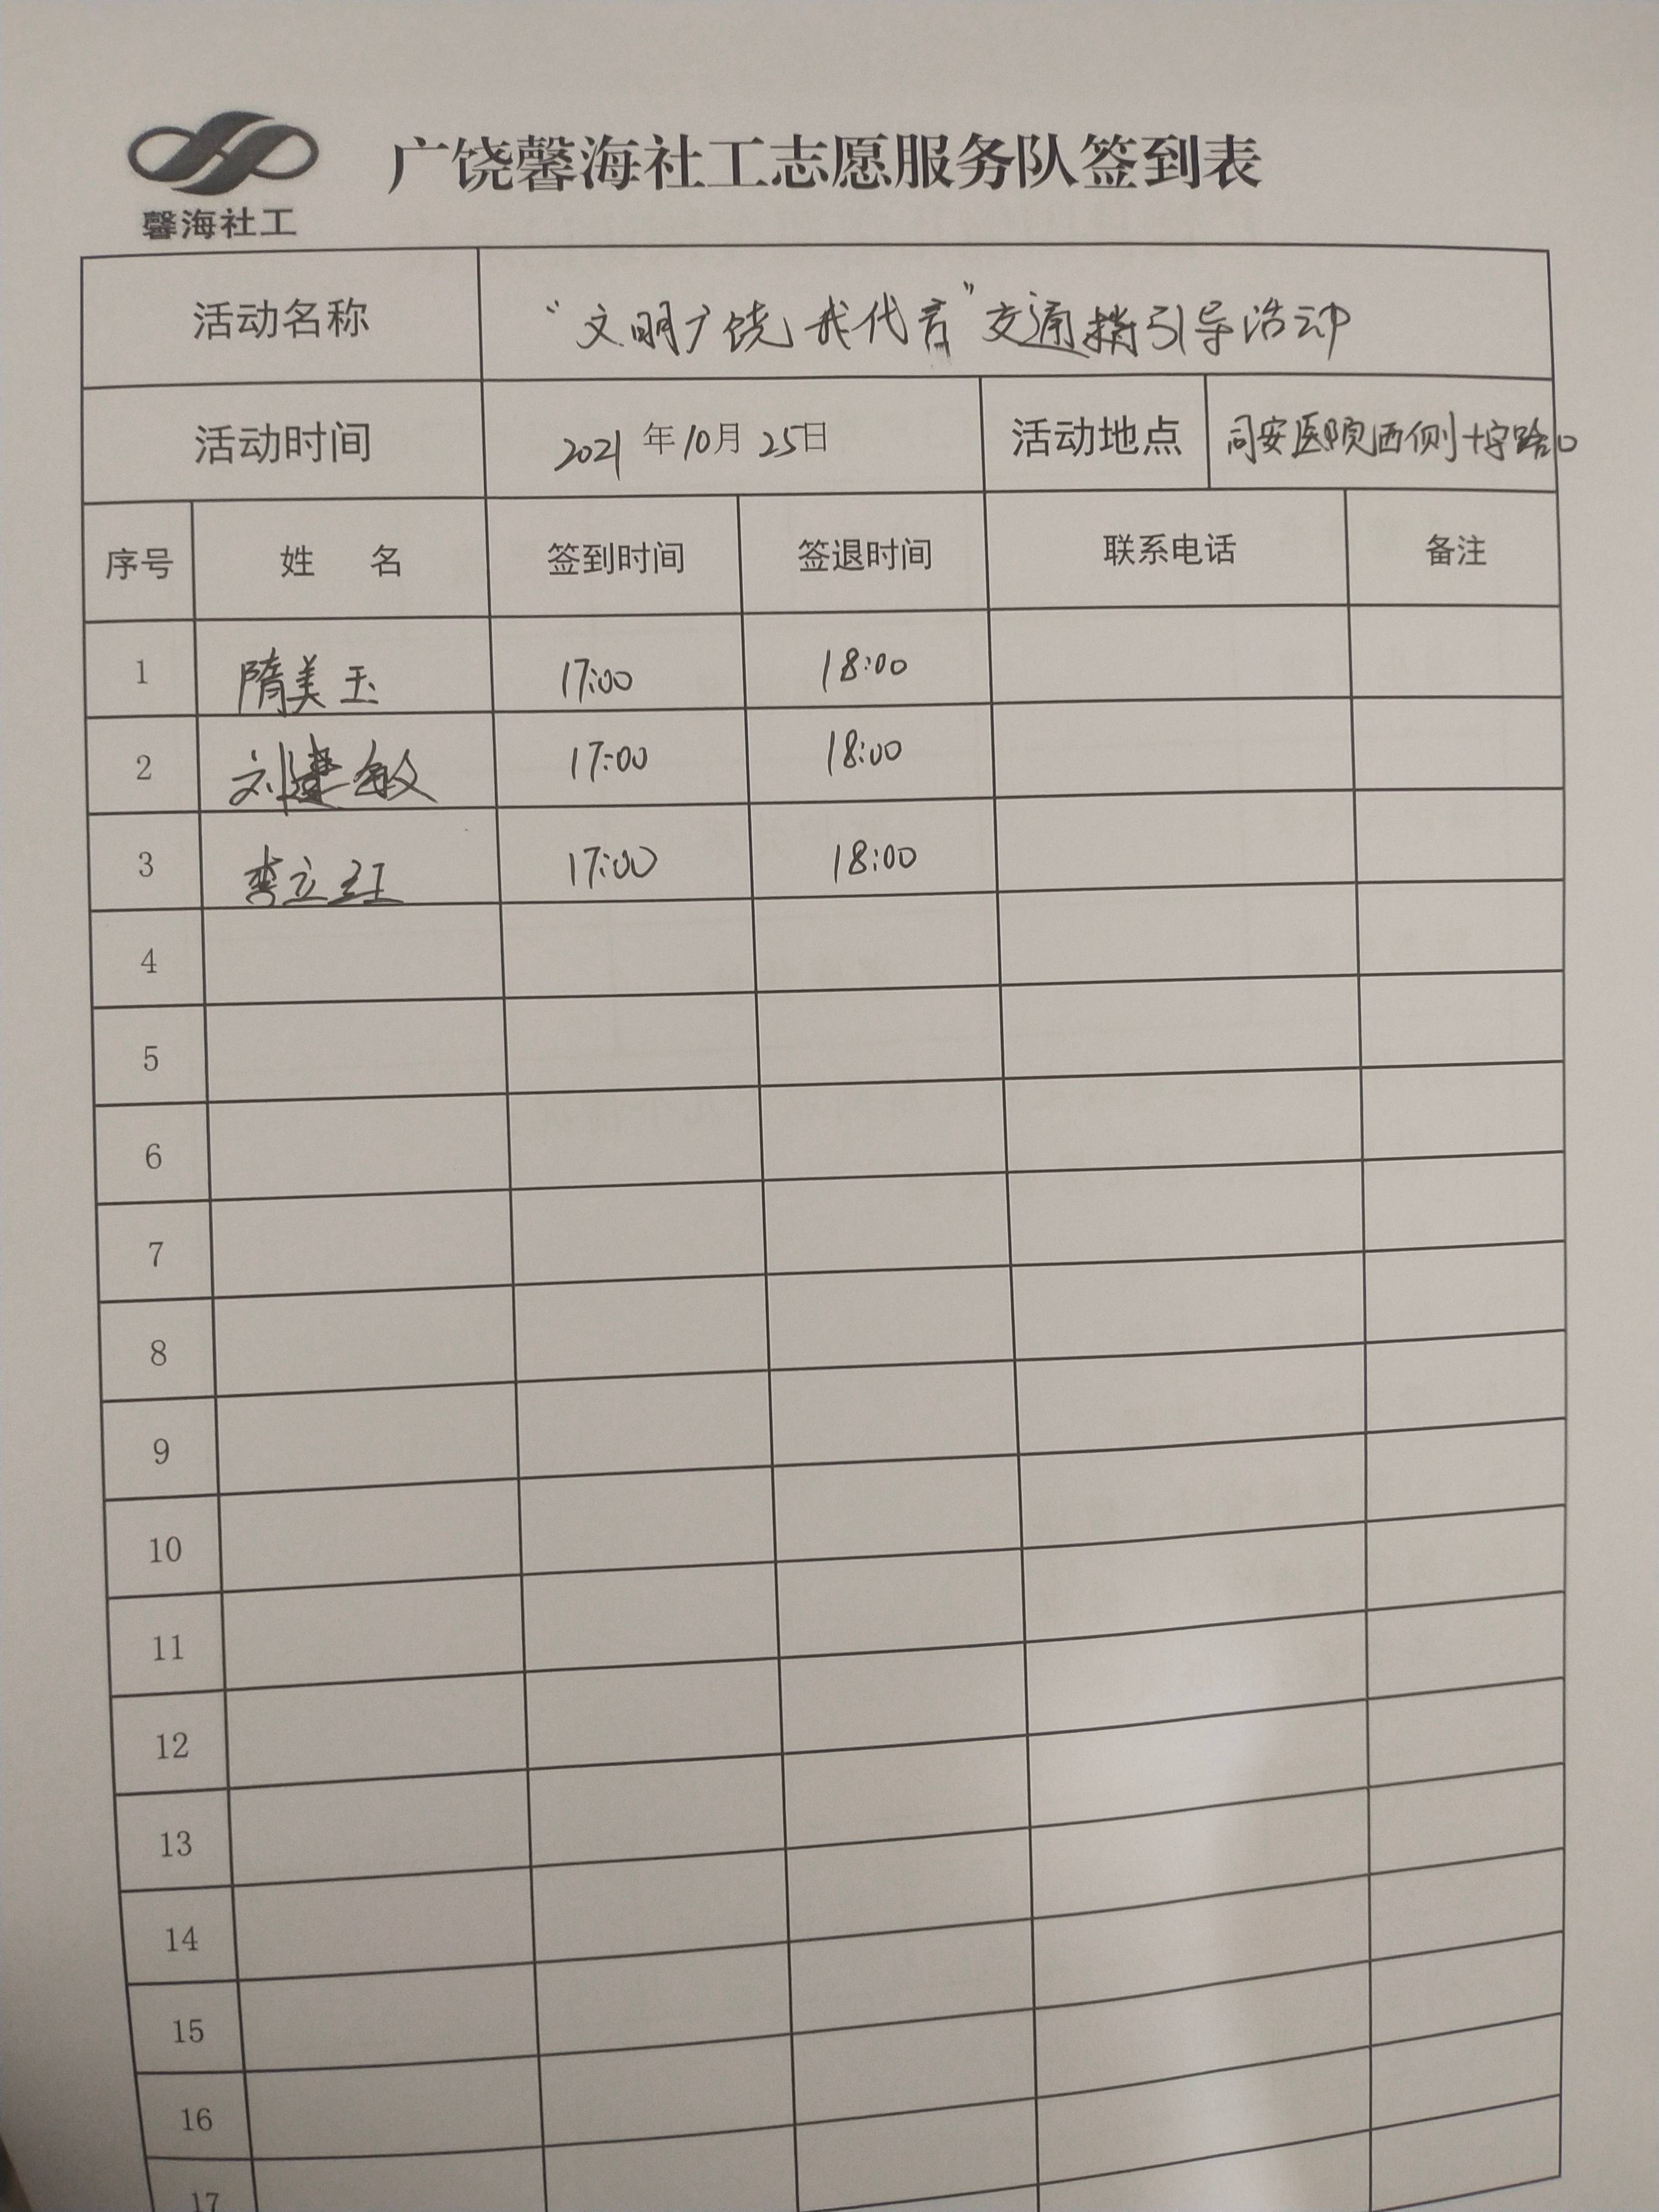 广饶馨海社工志愿服务队签到表
馨海社工
活动名称 “文明广饶 我代言”交通指引导活动
活动时间 2021年10月25日 活动地点 同安医院西侧十字路口
序号 姓 名 签到时间 签退时间 联系电话 备注
1 隋美玉 17:00 18:00
2 刘建敏 17:00 18:00
3 李立红 17:00 18:00
4
5
6
7
8
9
10
11
12
13
14
15
16
17